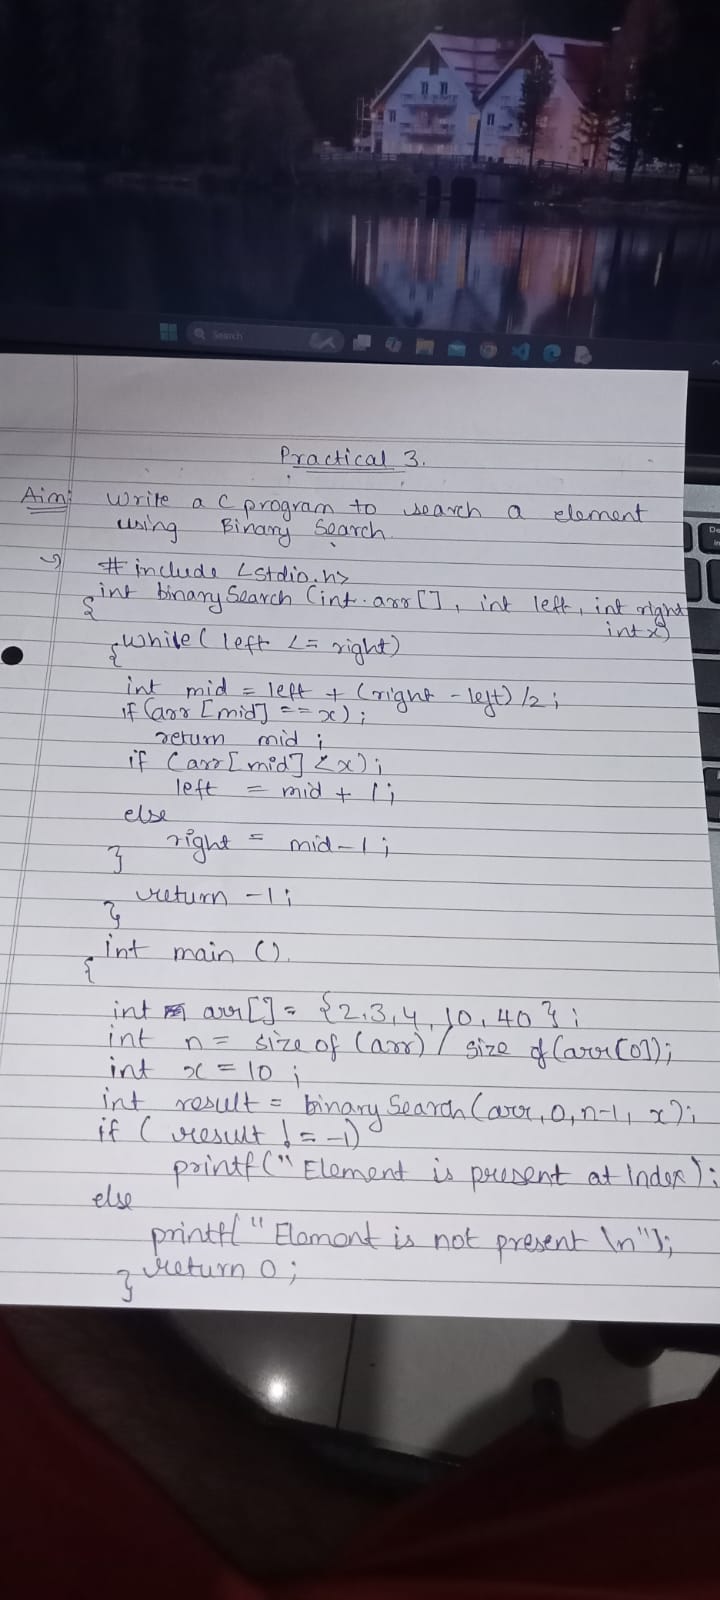 Search
Practical 3.
Aim: Write a C program to search a element
using Binary Search.
# include <stdio.h>
int binarySearch (int arr[], int left, int right
int x)
{
while ( left <= right)
{
int mid = left + (right - left) /2 ;
if (arr [mid] == x) ;
return mid ;
if (arr[mid] < x) ;
left = mid + 1 ;
else
right = mid-1 ;
}
return -1 ;
}
int main ()
{
int arr[] = {2,3,4,10,40} ;
int n = size of (arr) / size of (arr[0]);
int x = 10 ;
int result = binary Search (arr, 0, n-1, x) ;
if ( result != -1)
printf (" Element is present at Index ) ;
else
printf( " Element is not present \n") ;
return 0 ;
}